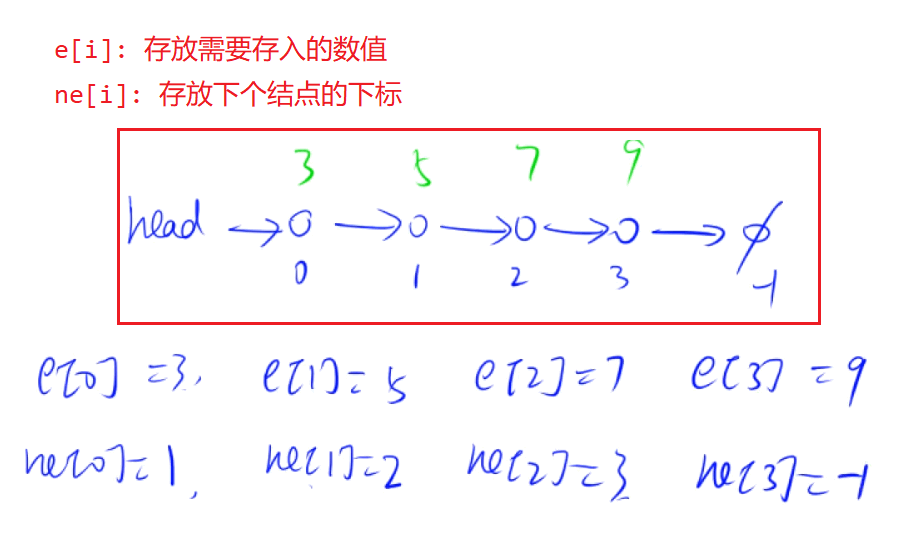 e[i]: 存放需要存入的数值
ne[i]: 存放下个结点的下标
3 5 7 9
head → 0 → 0 → 0 → 0 → ∅
0 1 2 3 -1
e[0] = 3, e[1] = 5 e[2] = 7 e[3] = 9
ne[0] = 1, ne[1] = 2 ne[2] = 3 ne[3] = -1